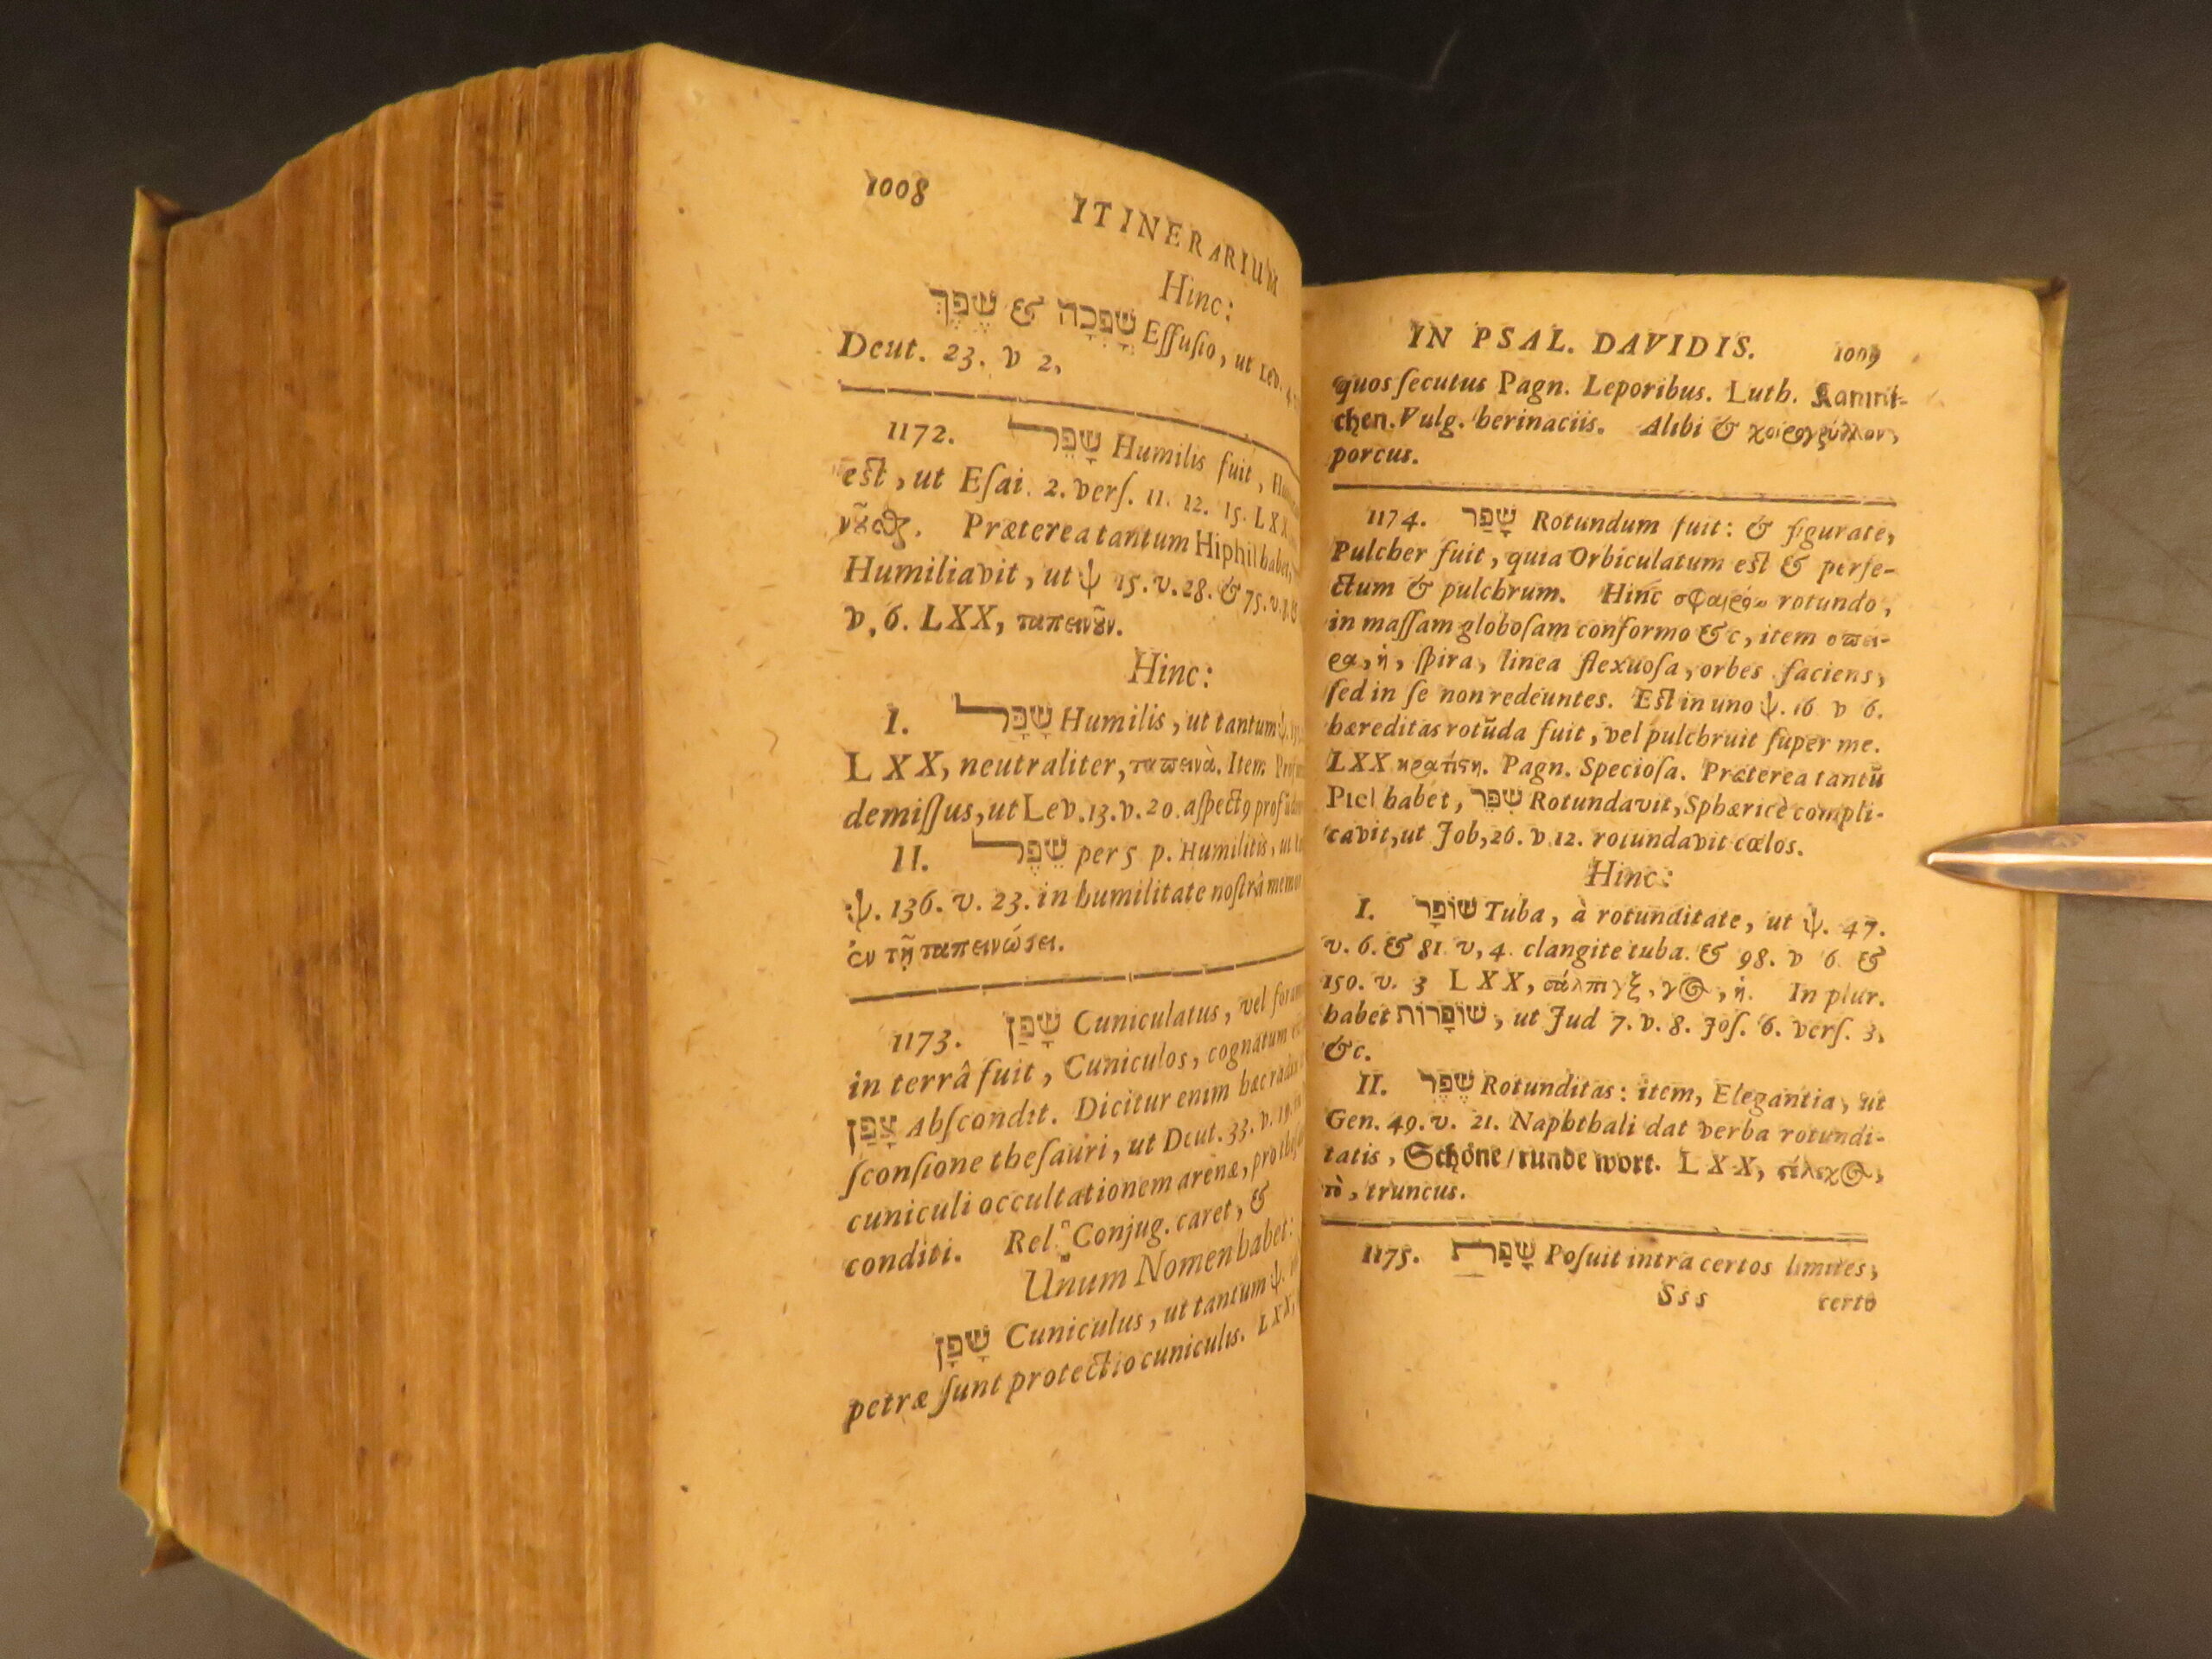 1008 ITINERARIUM
Hinc:
שָׁפְכָה & שֶׁפֶךְ Effuſio, ut Lev. 4.
Deut. 23. v 2.
1172. שָׁפֵל Humilis fuit,
eſt, ut Eſai. 2. verſ. 11. 12. 15. LXX
Prætereatantum Hiphil habet,
Humiliavit, ut ψ 15. v. 28. & 75. v. 8.
v. 6. LXX, ταπεινοῦν.
Hinc:
I. שָׁפָל Humilis, ut tantum ψ.
LXX, neutraliter, ταπεινὰ. Item
demiſſus, ut Lev. 13. v. 20. aſpectꝰ
II. שֵׁפֶל per 5 p. Humilitis,
ψ. 136. v. 23. in humilitate noſtrâ
ἐν τῇ ταπεινώσει.
1173. שָׁפַן Cuniculatus, vel
in terrâ fuit, Cuniculos, cognatum
צָפַן Abſcondit. Dicitur enim hæc radix
ſconſione theſauri, ut Deut. 33. v. 19.
cuniculi occultationem arenæ, pro
conditi. Rel. Conjug. caret, &
Unum Nomen habet:
שָׁפָן Cuniculus, ut tantum ψ.
petræ ſunt protectio cuniculis. LXX,
IN PSAL. DAVIDIS. 1009
quos ſecutus Pagn. Leporibus. Luth. Kannin-
chen. Vulg. herinaciis. Alibi & χοιρογρύλλιον,
porcus.
1174. שָׁפַר Rotundum fuit: & figurate,
Pulcher fuit, quia Orbiculatum eſt & perfe-
ctum & pulchrum. Hinc σφαιρόω rotundo,
in maſſam globoſam conformo &c, item σπεῖ-
ρα, ἡ, ſpira, linea flexuoſa, orbes faciens,
ſed in ſe non redeuntes. Eſt in uno ψ. 16 v 6.
hæreditas rotũda fuit, vel pulchruit ſuper me.
LXX κρατίστη. Pagn. Specioſa. Præterea tantũ
Piel habet, שִׁפֵּר Rotundavit, Sphæricè compli-
cavit, ut Job, 26. v 12. rotundavit cœlos.
Hinc:
I. שׁוֹפָר Tuba, à rotunditate, ut ψ. 47.
v. 6. & 81. v, 4. clangite tuba. & 98. v 6 &
150. v. 3 LXX, σάλπιγξ, γος, ἡ. In plur.
habet שׁוֹפָרוֹת, ut Jud 7. v. 8. Joſ. 6. verſ. 3.
&c.
II. שֶׁפֶר Rotunditas: item, Elegantia, ut
Gen. 49. v. 21. Naphthali dat verba rotundi-
tatis, Schöne / runde wort. LXX, στέλεχος,
τὸ, truncus.
1175. שָׁפַת Poſuit intra certos limites,
Sss certo